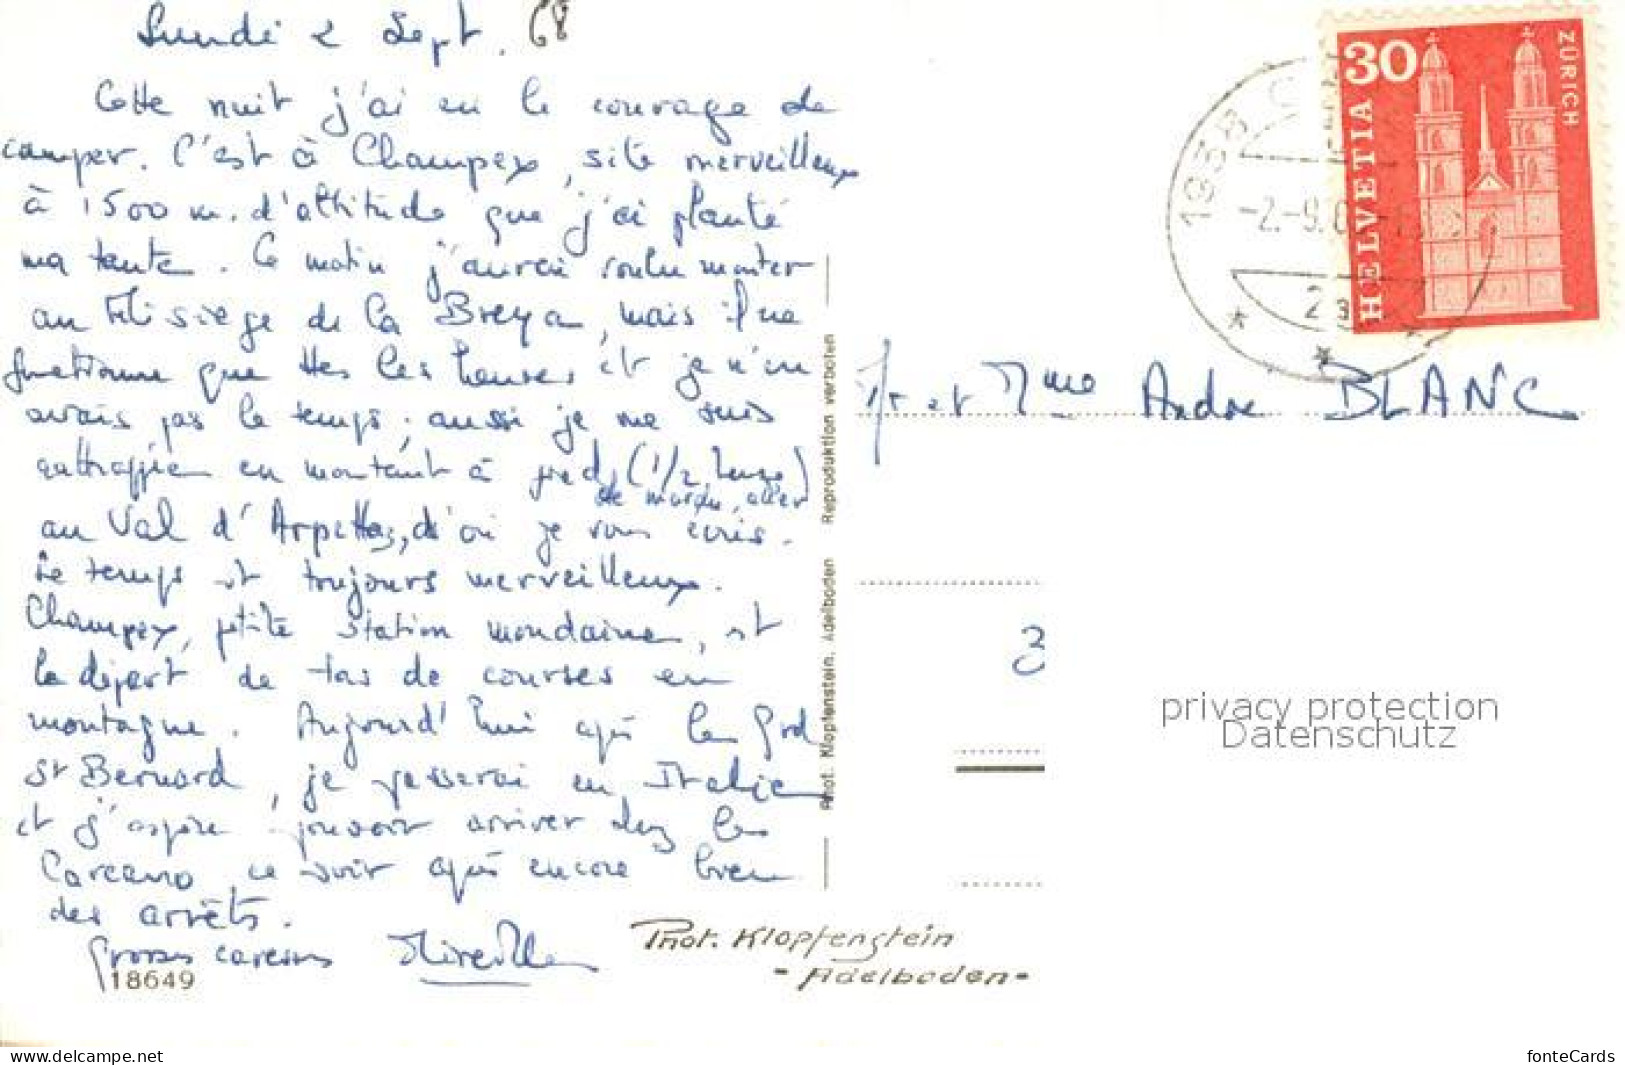 Lundi 2 Sept. 68
Cette nuit j'ai eu le courage de
camper. C'est à Champex, site merveilleux
à 1500 m. d'altitude que j'ai planté
ma tente. Ce matin j'aurai voulu monter
au télésiège de la Breya, mais il ne
fonctionne que ttes les heures et je n'en
avais pas le temps ; aussi je me suis
rattrapée en montant à pied (1/2 heure)
de marche, aller
au Val d'Arpettaz, d'où je vous écris.
Le temps est toujours merveilleux.
Champex, petite station mondaine, est
le départ de tas de courses en
montagne. Aujourd'hui après le Grd
St Bernard, je passerai en Italie
et j'espère pouvoir arriver chez les
Carcano ce soir après encore bien
des arrêts.
Grosses caresses Mireille
18649
Phot. Klopfenstein
- Adelboden -
Phot. Klopfenstein, Adelboden Reproduktion verboten
Mr et Mme André BLANC
3
30
HELVETIA
ZÜRICH
1938
-2.-9.
privacy protection
Datenschutz
www.delcampe.net
fonteCards